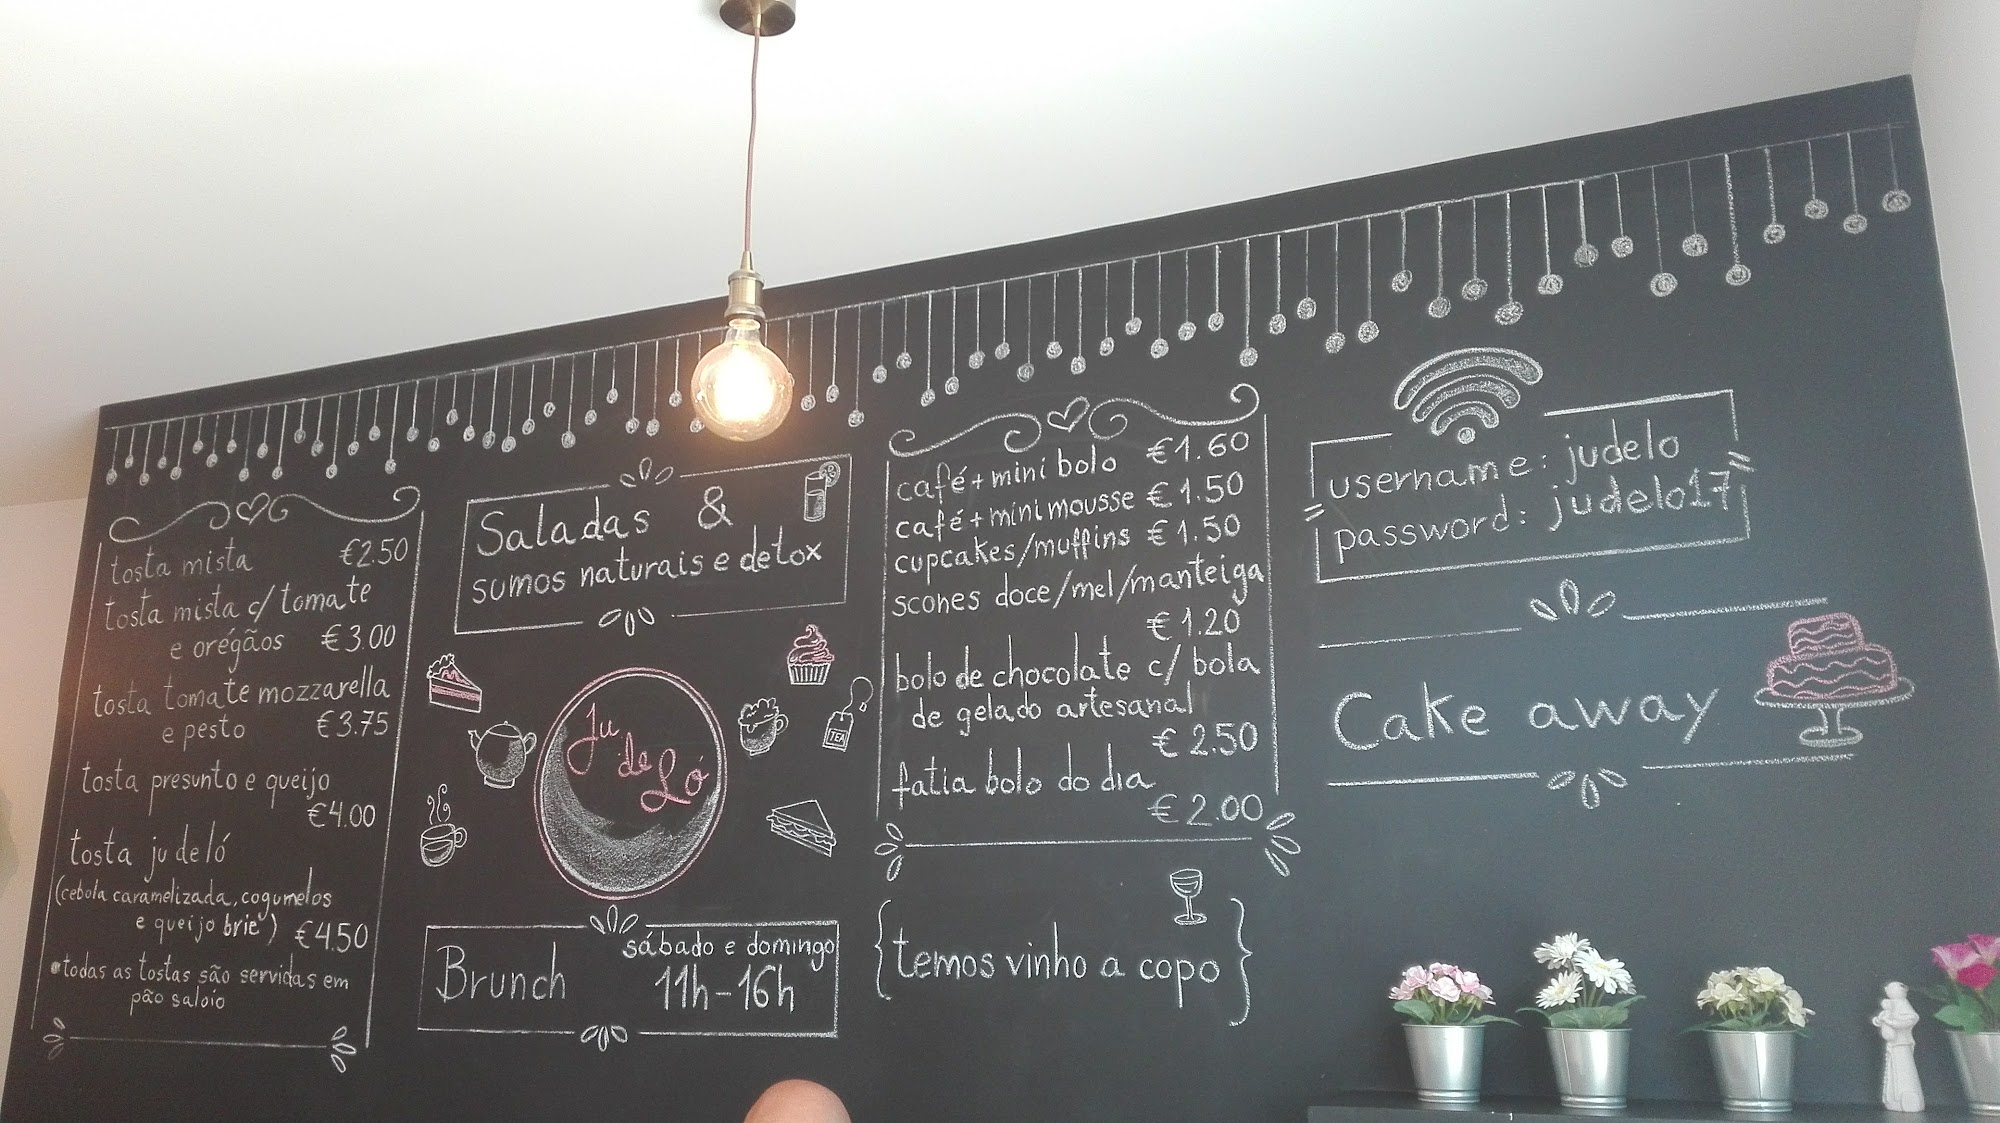 tosta mista €2.50
tosta mista c/ tomate
e orégãos €3.00
tosta tomate mozzarella
e pesto €3.75
tosta presunto e queijo
€4.00
tosta ju de ló
(cebola caramelizada, cogumelos
e queijo brie) €4.50
•todas as tostas são servidas em
pão saloio
Saladas &
sumos naturais e detox
Ju
de
Ló
TEA
Brunch
sábado e domingo
11h-16h
café+mini bolo €1.60
café+mini mousse €1.50
cupcakes/muffins €1.50
scones doce/mel/manteiga
€1.20
bolo de chocolate c/ bola
de gelado artesanal
€2.50
fatia bolo do dia
€2.00
{temos vinho a copo}
username: judelo
password: judelo17
Cake away